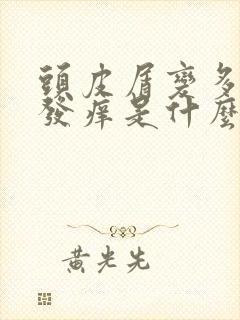 頭皮屑變多
發痒是什麼
黃光先